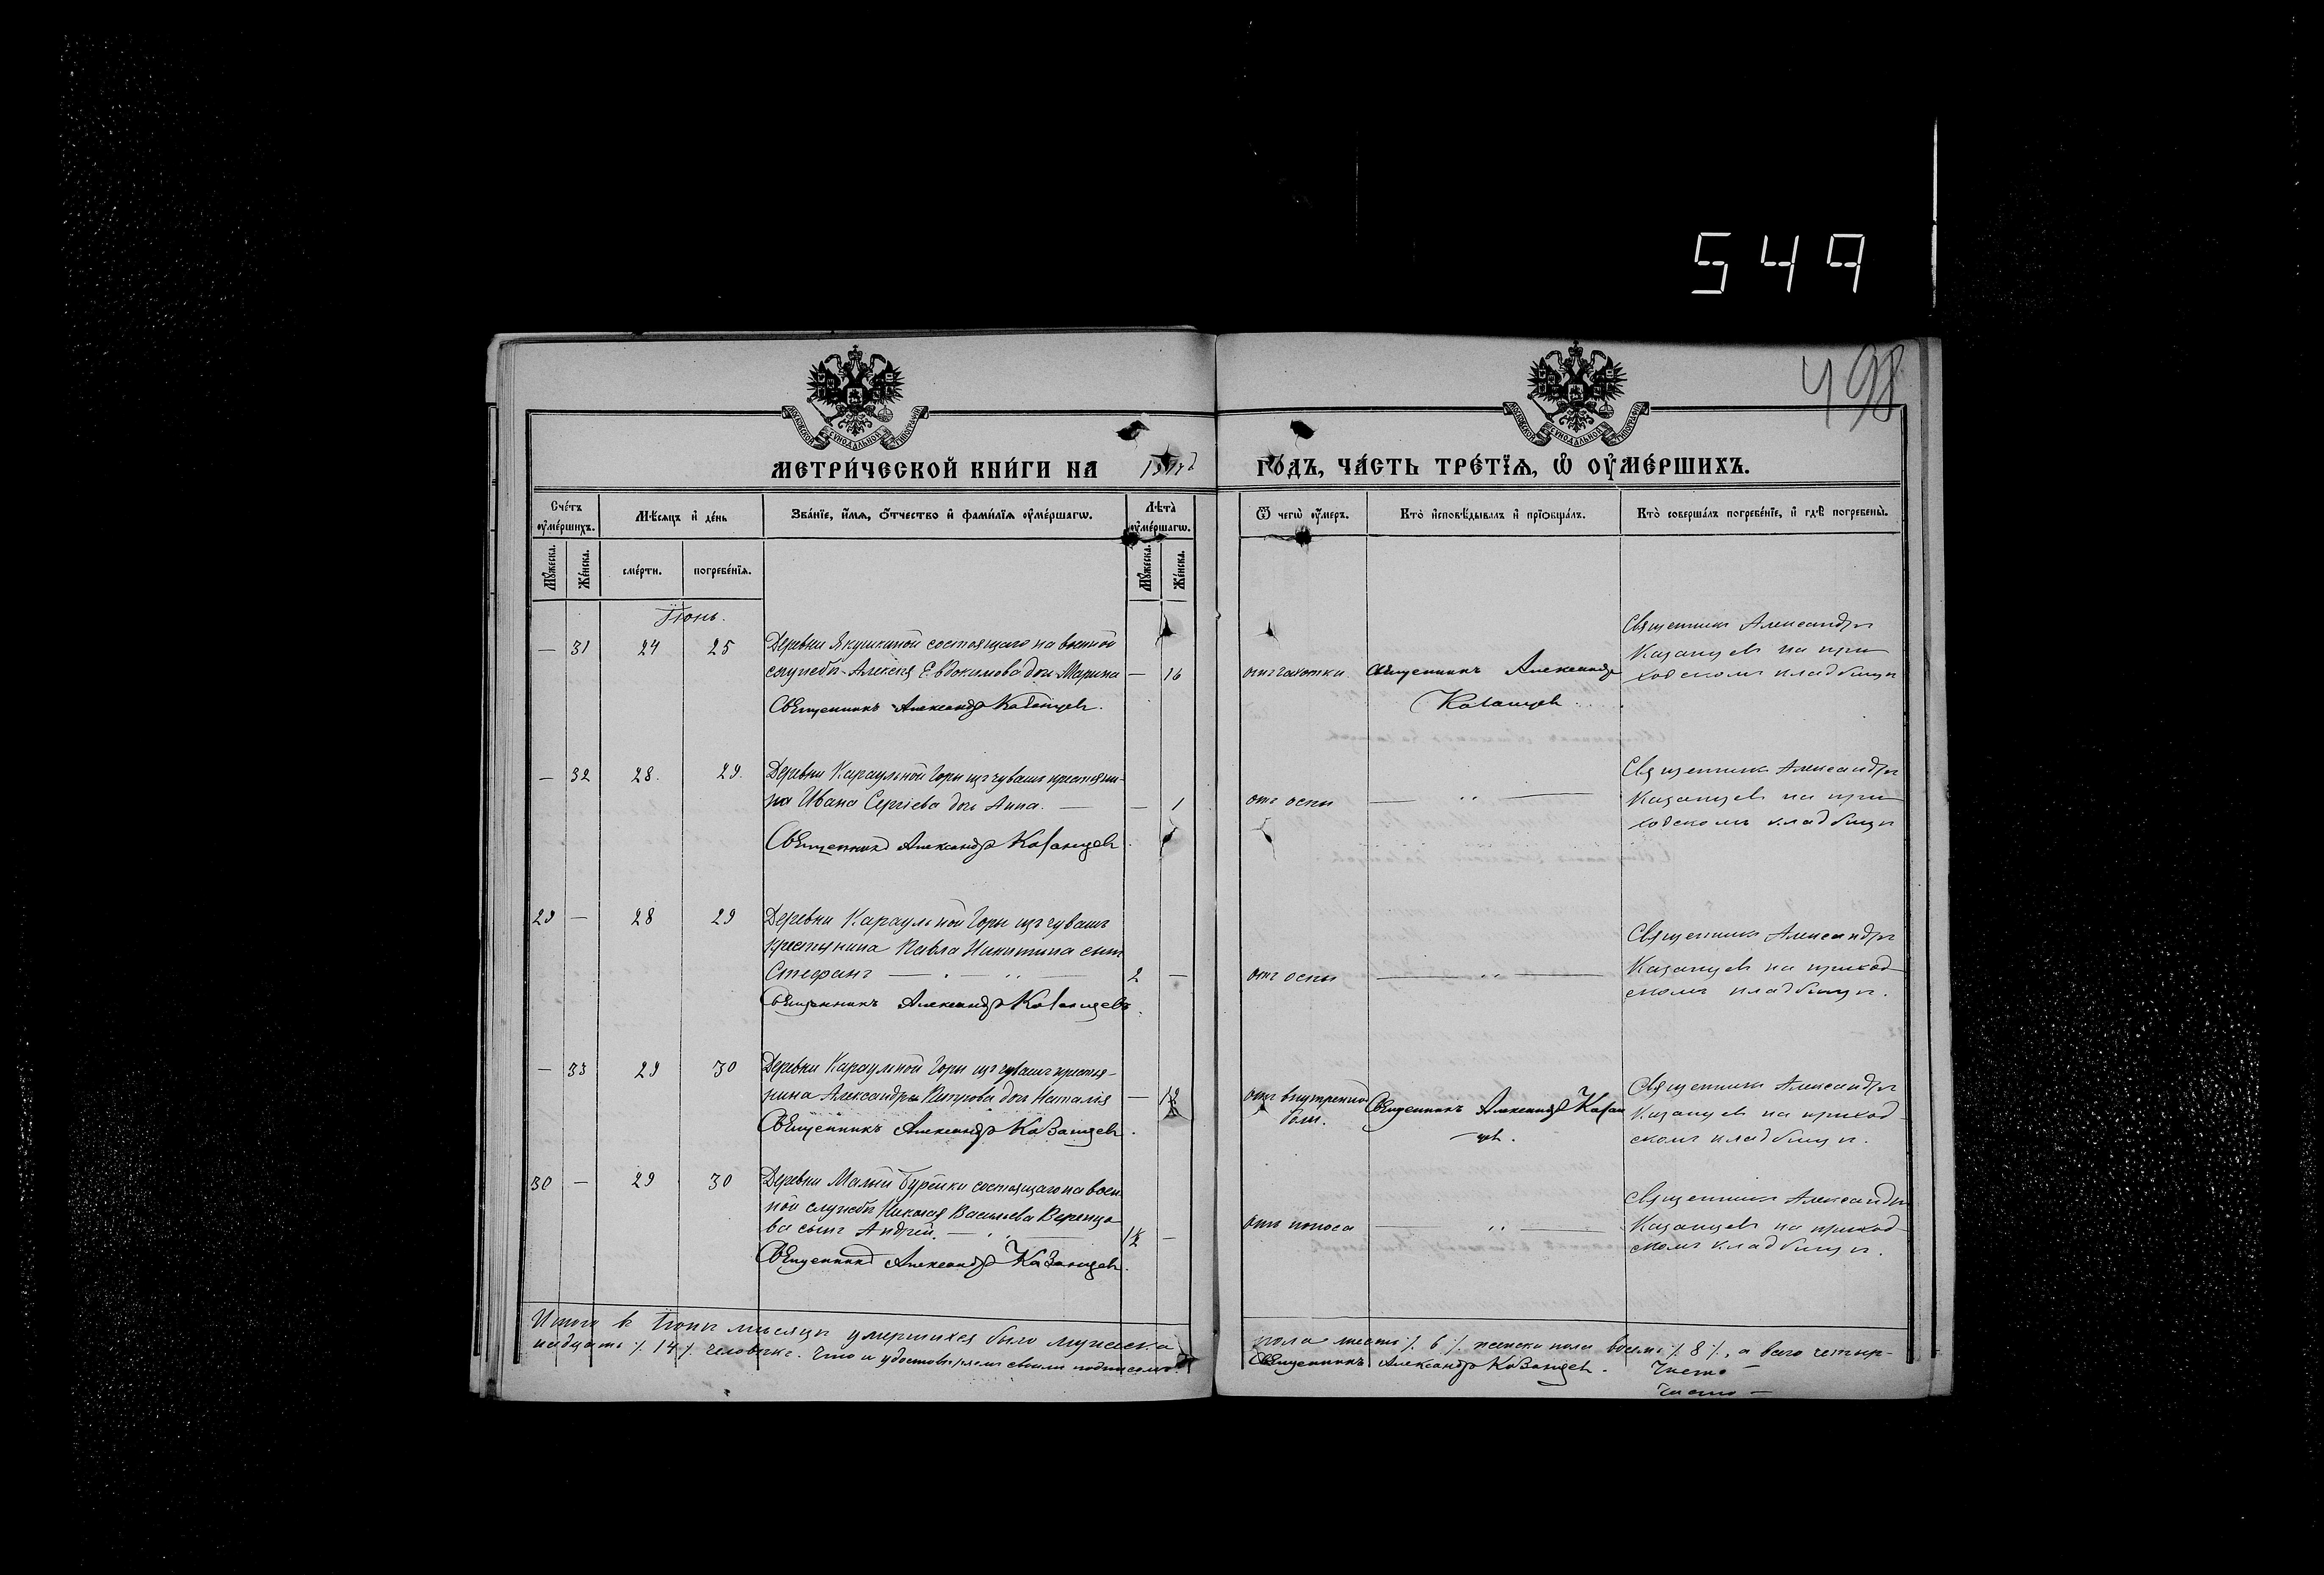 549
498
МОСКОВСКОЙ СѴНОДАЛЬНОЙ ТИПОГРАФІИ
МОСКОВСКОЙ СѴНОДАЛЬНОЙ ТИПОГРАФІИ
МЕТРИ́ЧЕСКОЙ КНИ́ГИ НА
ГО́ДЪ, ЧА́СТЬ ТРЕ́ТЇѦ, Ѡ҆ ОУ҆МЕ́РШИХЪ.
Сче́тъ оу҆ме́ршихъ.
Мѣ́сяцъ и҆ де́нь
Зва́нїе, и҆́мѧ, ѻ҆́тчество и҆ фами́лїѧ оу҆ме́ршагѡ.
Лѣ̀та оу҆ме́ршагѡ.
Ѿ чегѡ̀ оу҆́меръ.
Кто̀ и҆сповѣ́дывалъ и҆ прїобща́лъ.
Кто̀ соверша́лъ погребе́нїе, и҆ гдѣ̀ погребены̀.
Мꙋ́жеска.
Же́нска.
сме́рти.
погребе́нїѧ.
Мꙋ́жеска.
Же́нска.
Іюнь.
— 31 24 25
Деревни Якушкиной состоящаго на военной
службѣ Алексѣя Евдокимова дочь Марина — 16
Священникъ Александръ Казанцевъ.
отъ чахотки
Священникъ Александръ
Казанцевъ.
Священникъ Александръ
Казанцевъ на при
ходскомъ кладбищѣ
— 32 28. 29.
Деревни Караульной Горы изъ чувашъ крестьяни-
на Ивана Сергіева дочь Анна. — — 1
Священникъ Александръ Казанцевъ.
отъ оспы — „ —
Священникъ Александръ
Казанцевъ на при
ходскомъ кладбищѣ
29 — 28 29
Деревни Караульной Горы изъ чувашъ
крестьянина Павла Никитина сынъ
Стефанъ — „ — 2 —
Священникъ Александръ Казанцевъ.
отъ оспы — „ —
Священникъ Александръ
Казанцевъ на приход
скомъ кладбищѣ.
— 33 29 30
Деревни Караульной Горы изъ чувашъ крестья-
нина Александра Петрова дочь Наталія —
Священникъ Александръ Казанцевъ.
отъ внутренней
боли.
Священникъ Александръ Казан
цевъ.
Священникъ Александръ
Казанцевъ на приход
скомъ кладбищѣ.
30 — 29 30
Деревни Малой Бурейки состоящаго на воен
ной службѣ Николая Васильева Веренцо
ва сынъ Андрей. — „ — ½ —
Священникъ Александръ Казанцевъ.
отъ поноса — „ —
Священникъ Александръ
Казанцевъ на приход
скомъ кладбищѣ.
Итого въ Іюнѣ мѣсяцѣ умершихъ было мужеска
пола шесть /. 6 /. женска пола восемь /. 8 /., а всего четыр-
надцать /. 14 /. человѣкъ. Что и удостовѣряемъ своимъ подписомъ.
Священникъ Александръ Казанцевъ.